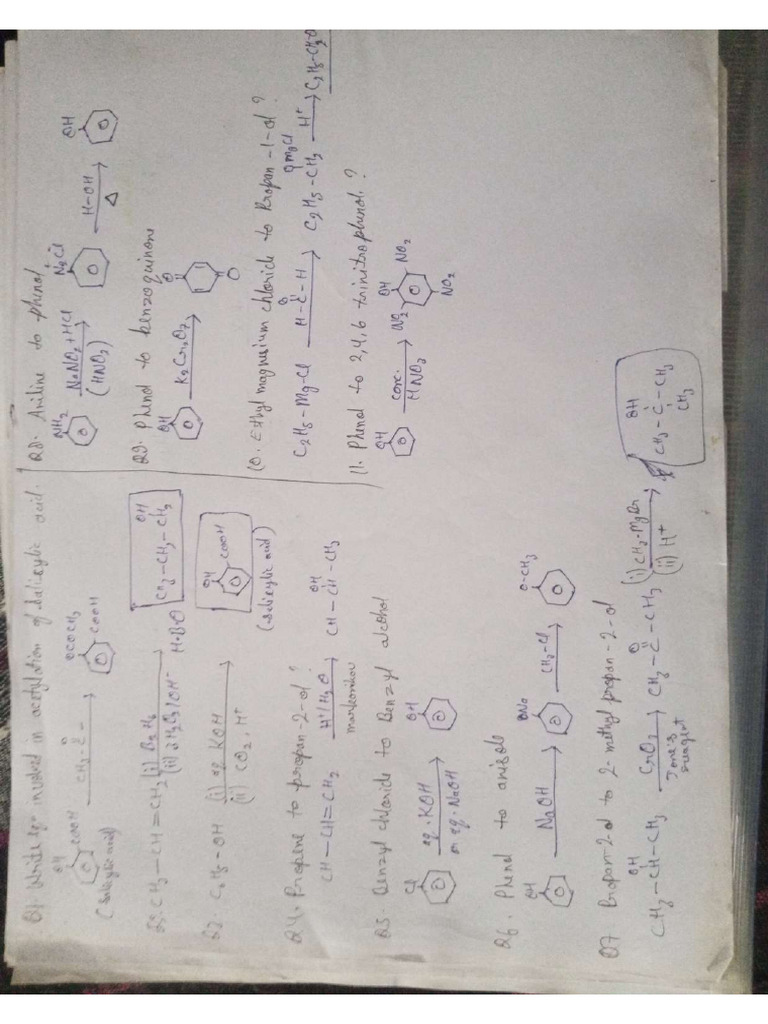 Q1 Write eqn involved in acetylation of salicylic acid.
OH
COOH
CH3-C-
O
OCOCH3
COOH
(Salicylic acid)
Q2. CH3-CH=CH2 (i) B2H6
(ii) 3H2O2/OH-
CH3-CH2-CH2
OH
H-B-O
Q3. C6H5-OH (i) aq. KOH
(ii) CO2, H+
OH
COOH
(salicylic acid)
Q4. Propene to propan-2-ol?
CH-CH=CH2 H+/H2O CH-CH-CH3
OH
markonikov
Q5. Benzyl chloride to Benzyl alcohol
Cl
aq. KOH
or aq. NaOH
OH
Q6. Phenol to anisole
OH
NaOH
ONa
CH3-Cl
O-CH3
Q7 Propan-2-ol to 2-methyl propan-2-ol
OH
CH3-CH-CH3 CrO3 CH3-C-CH3 (i) CH3-MgBr
O
(ii) H+
Jone's
reagent
OH
CH3-C-CH3
CH3
Q8. Aniline to phenol
NH2
NaNO2+HCl
(HNO2)
N2Cl
H-OH
Δ
OH
Q9. Phenol to benzoquinone
OH
K2Cr2O7
O
O
10. Ethyl magnesium chloride to Propan-1-ol?
C2H5-Mg-Cl H-C-H C2H5-CH2 H+ C2H5-CH2-O
O
OmgCl
11. Phenol to 2,4,6 trinitrophenol?
OH
conc.
HNO3
OH
NO2
NO2
NO2